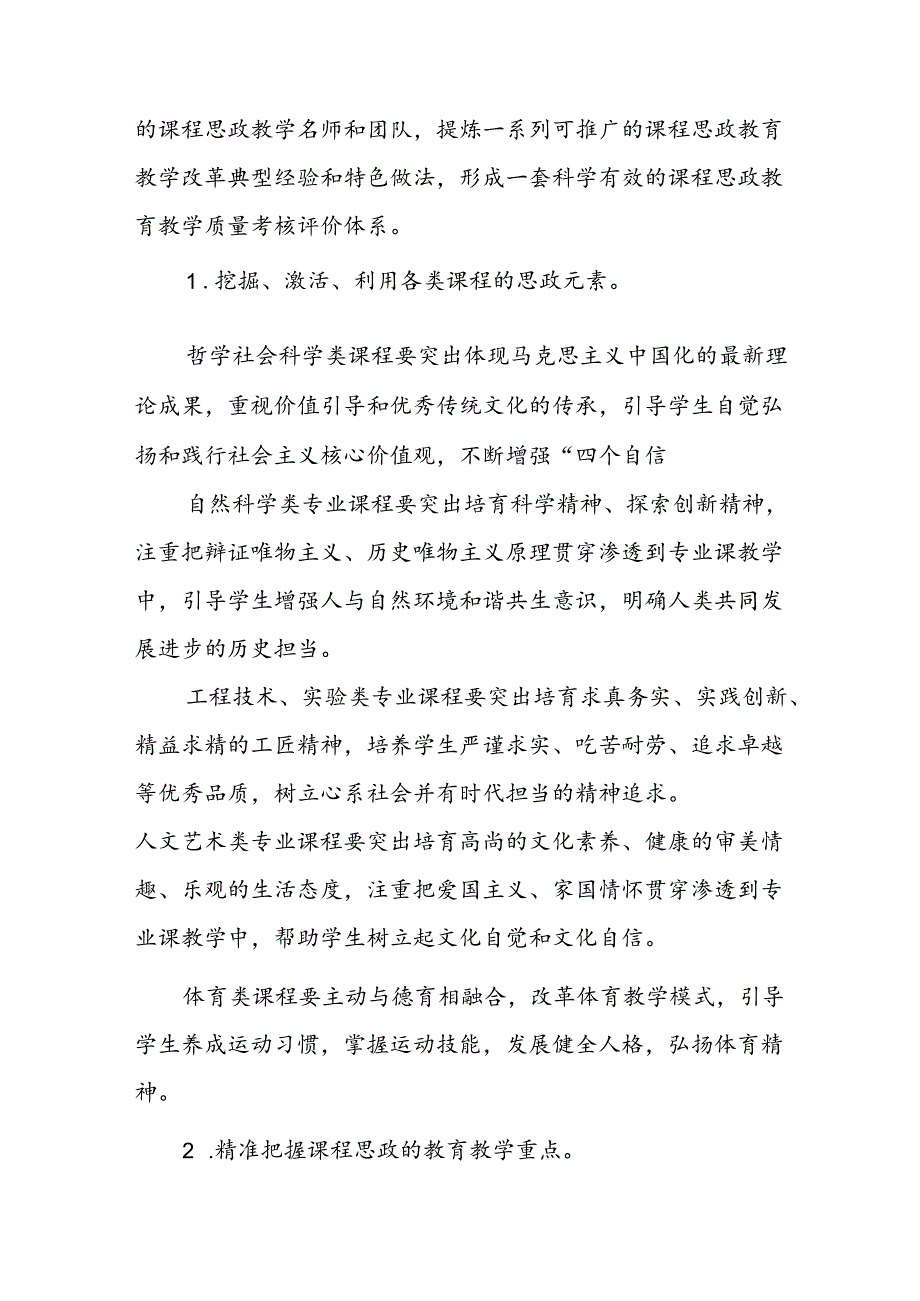 的课程思政教学名师和团队，提炼一系列可推广的课程思政教育
教学改革典型经验和特色做法，形成一套科学有效的课程思政教
育教学质量考核评价体系。
1 .挖掘、激活、利用各类课程的思政元素。
哲学社会科学类课程要突出体现马克思主义中国化的最新理
论成果，重视价值引导和优秀传统文化的传承，引导学生自觉弘
扬和践行社会主义核心价值观，不断增强“四个自信
自然科学类专业课程要突出培育科学精神、探索创新精神，
注重把辩证唯物主义、历史唯物主义原理贯穿渗透到专业课教学
中，引导学生增强人与自然环境和谐共生意识，明确人类共同发
展进步的历史担当。
工程技术、实验类专业课程要突出培育求真务实、实践创新、
精益求精的工匠精神，培养学生严谨求实、吃苦耐劳、追求卓越
等优秀品质，树立心系社会并有时代担当的精神追求。
人文艺术类专业课程要突出培育高尚的文化素养、健康的审美情
趣、乐观的生活态度，注重把爱国主义、家国情怀贯穿渗透到专
业课教学中，帮助学生树立起文化自觉和文化自信。
体育类课程要主动与德育相融合，改革体育教学模式，引导
学生养成运动习惯，掌握运动技能，发展健全人格，弘扬体育精
神。
2 .精准把握课程思政的教育教学重点。